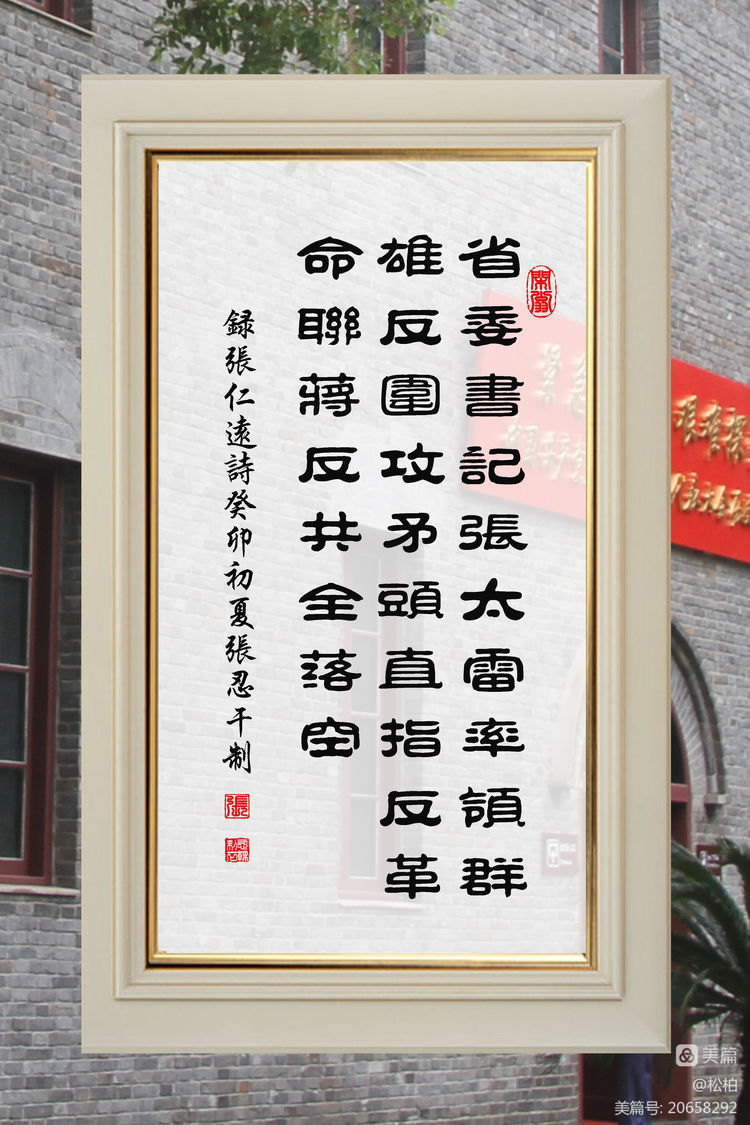 省委書記張太雷率領群
雄反圍攻矛頭直指反革
命聯蔣反共全落空
録張仁遠詩癸卯初夏張忍干制
張
美篇
@松柏
美篇号: 20658292